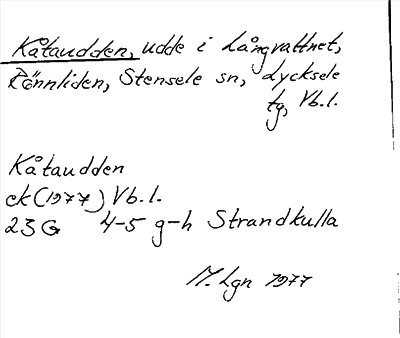 Kåtaudden, udde i Långvattnet,
Rönnliden, Stensele sn, Lycksele
tg, Vb.l.
Kåtaudden
ek (1977) Vb.l.
23G 4-5 g-h Strandkulla
M. Lgn 1977